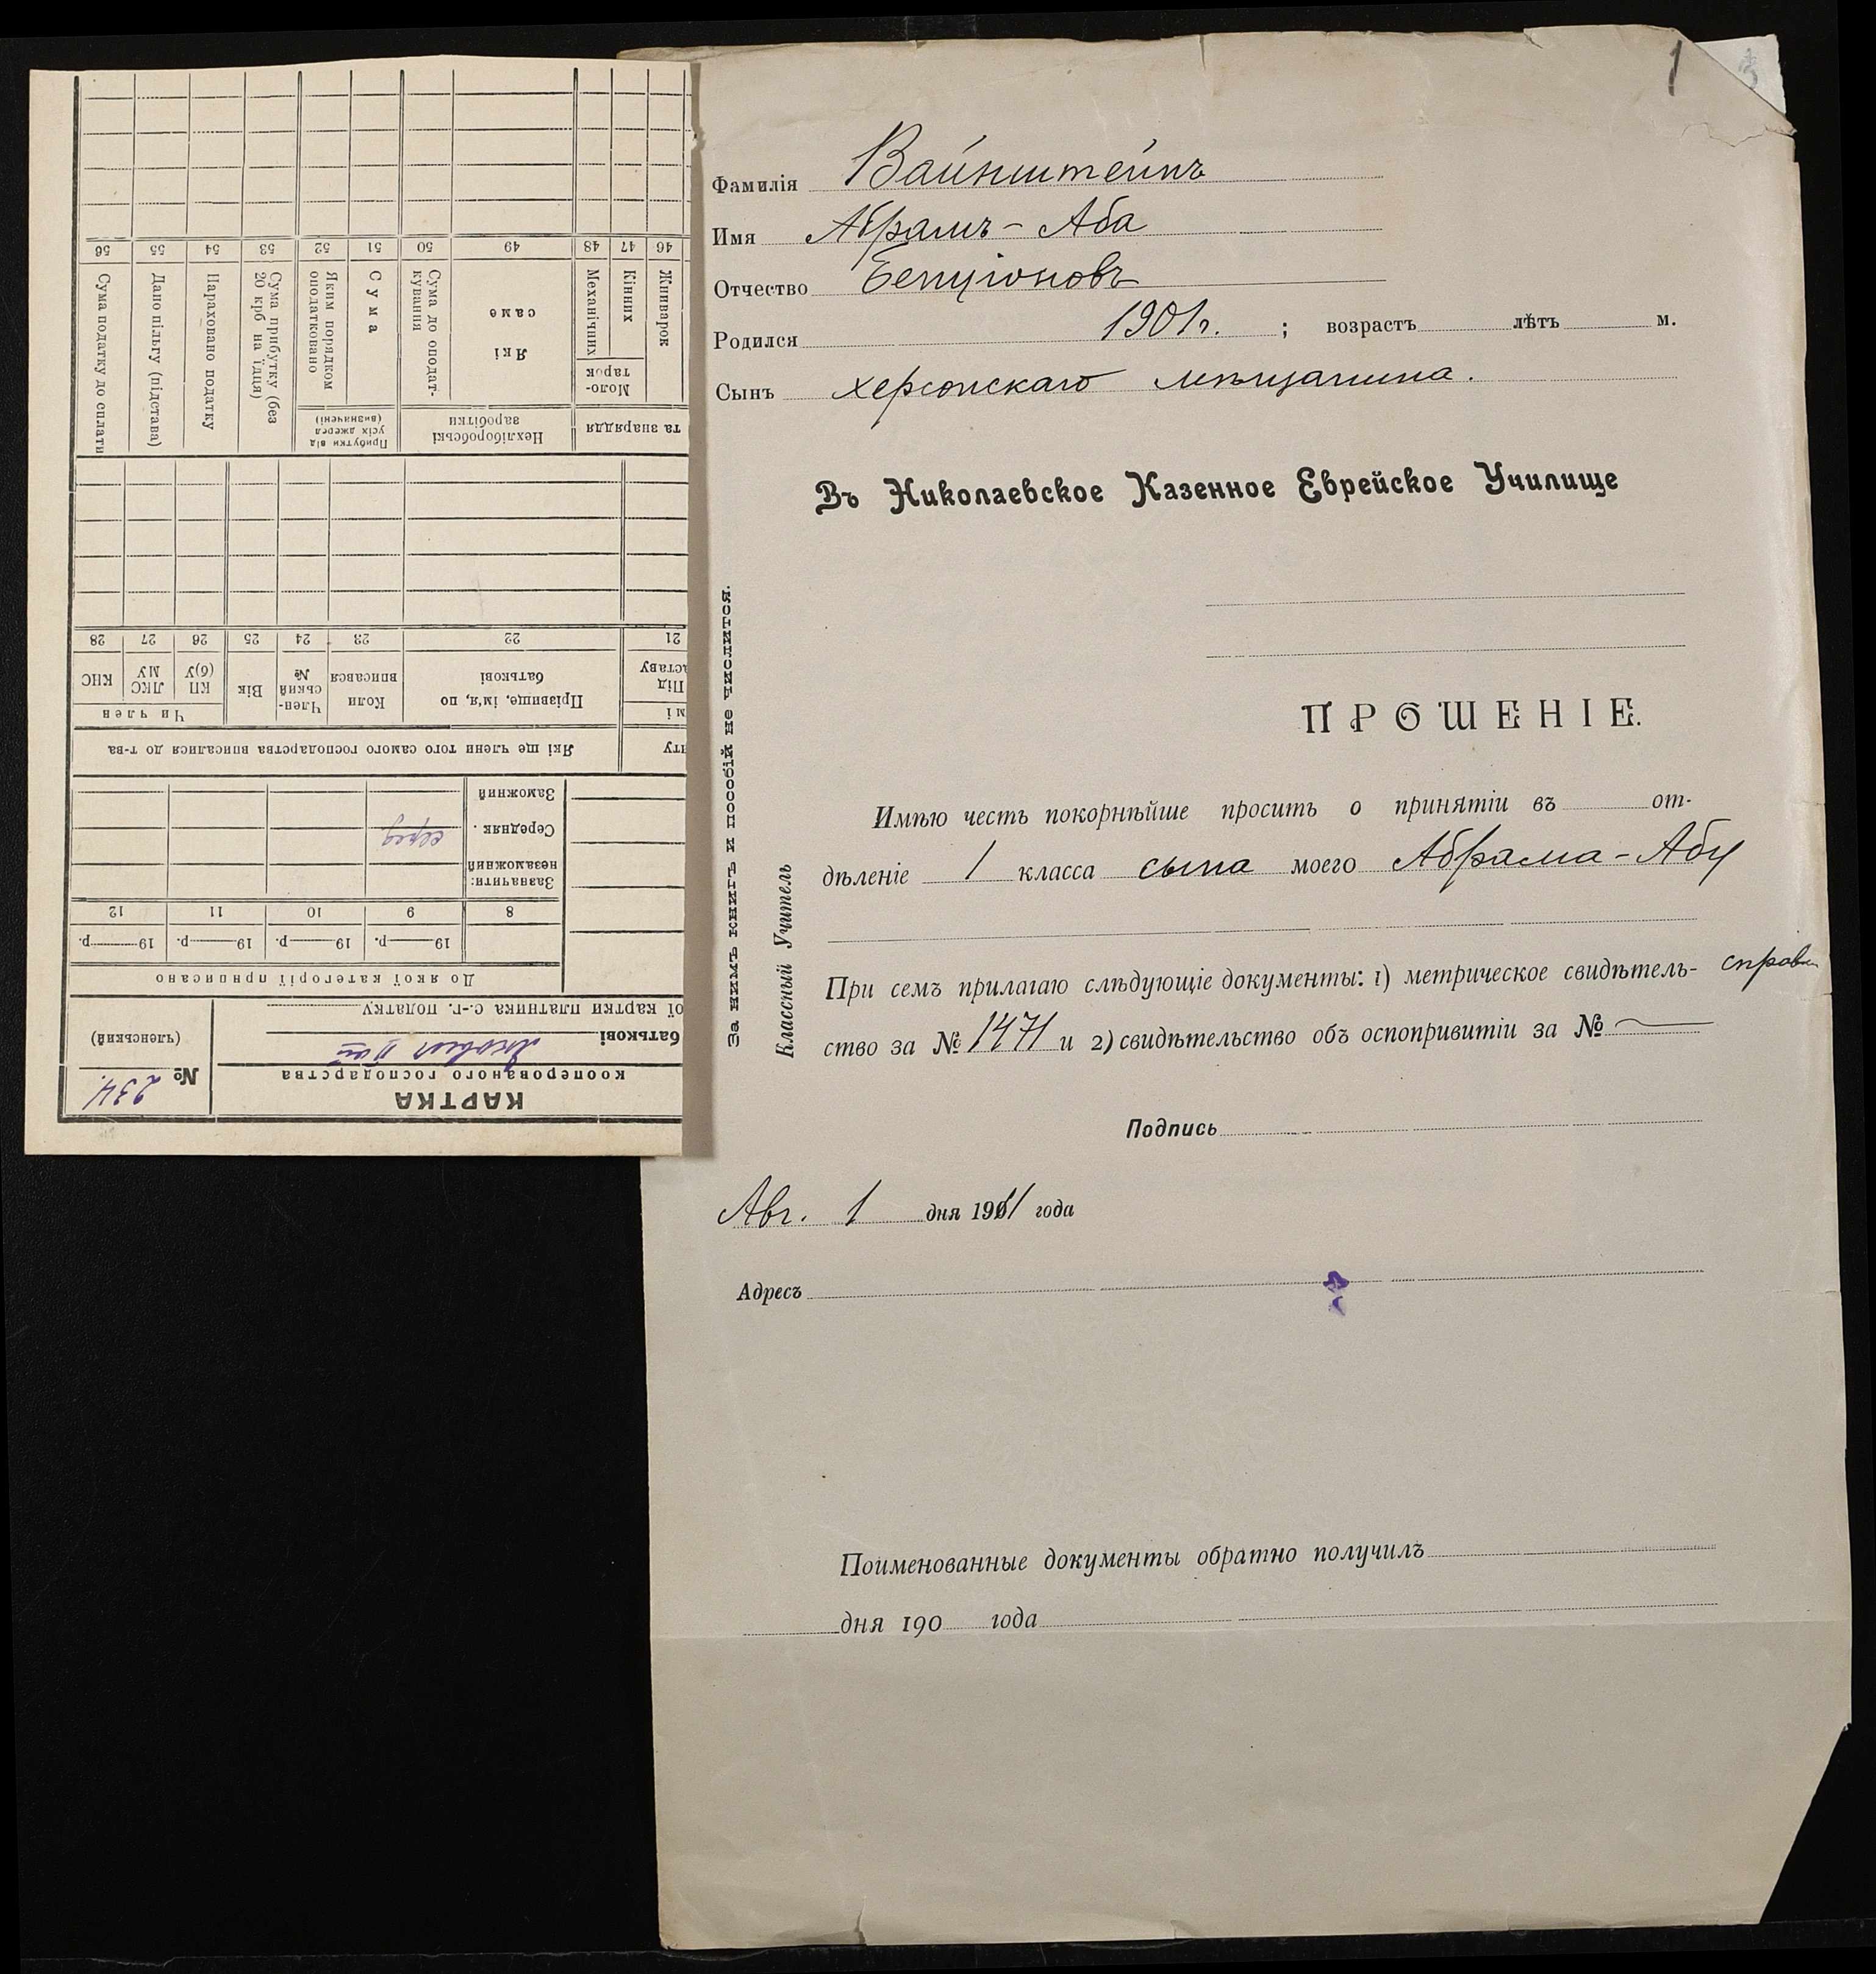 1
3
Фамилія Вайнштейнъ
Имя Абрамъ - Аба
Отчество Бенціоновъ
Родился 1901 г. ; возрастъ лѣтъ м.
Сынъ херсонскаго мѣщанина.
Въ Николаевское Казенное Еврейское Училище
ПРОШЕНІЕ.
Имѣю честь покорнѣйше просить о принятіи въ от-
дѣленіе 1 класса сына моего Абрама-Абу
При семъ прилагаю слѣдующіе документы: 1) метрическое свидѣтель- справк
ство за № 1471 и 2) свидѣтельство объ оспопривитіи за № —
Подпись
Авг. 1 дня 1911 года
Адресъ
Поименованные документы обратно получилъ
дня 190 года
За нимъ книгъ и пособій не числится.
Классный Учитель
КАРТКА
кооперованого господарства
№ 234.
(членський)
батькові
ої картки платника с.-г. податку
До якої категорії приписано
19 р. 19 р. 19 р. 19 р.
8 9 10 11 12
Зазначити:
незаможний
Середняк. серед
Заможний
нту
Які ще члени того самого господарства вписалися до т-ва
мі
Під
ставу
Прізвище, ім'я, по
батькові
Коли
вписався
Член-
ський
№
Вік
Чи член
КП
(б)У
ЛКС
МУ
КНС
21 22 23 24 25 26 27 28
та знаряддя
Нехліборобські
заробітки
Прибутки від
усіх джерел
(визначені)
Жниварок
Моло-
тарок
Кінних
Механічних
Які
саме
Сума до оподат-
кування
Сума
Яким порядком
оподатковано
Сума прибутку (без
20 крб на їдця)
Нараховано податку
Дано пільгу (підстава)
Сума податку до сплати
46 47 48 49 50 51 52 53 54 55 56